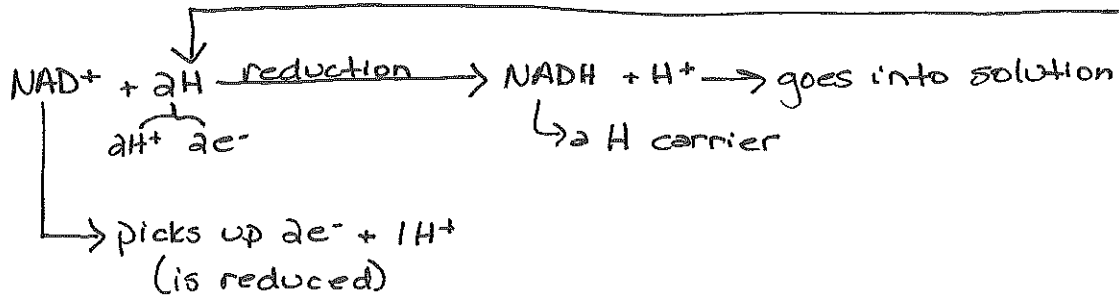 NAD+ + 2H reduction → NADH + H+ → goes into solution
2H+ 2e-
↳ 2 H carrier
→ picks up 2e- + 1H+
(is reduced)